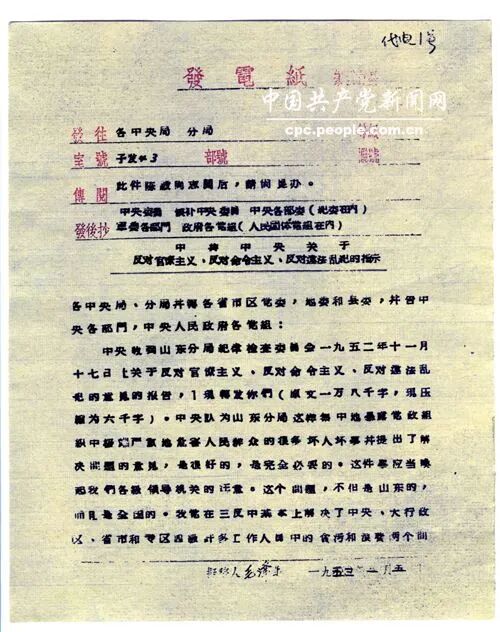 代电1号
發電紙
中国共产党新闻网
cpc.people.com.cn
發往 各中央局 分局
室號 子发413 部號
傳閱 此件 陈 同志閱后，請 办。
中央委員 候补中央委員 中央各部委（紀委在內）
發後抄 軍委各部門 政府各党組（人民団体党組在內）
中共中央关于
反对官僚主义、反对命令主义、反对違法乱紀的指示
各中央局、分局并轉各省市区党委，地委和县委，并告中
央各部門，中央人民政府各党組：
中央收到山东分局紀律檢查委員会一九五二年十一月
十七日关于反对官僚主义、反对命令主义、反对違法乱
紀的意見的报告，現轉发你們（原文一万八千字，現压
縮为六千字）。中央认为山东分局这样集中地暴露党政組
織中极端严重地危害人民群众的很多坏人坏事并提出了解
决問題的意見，是很好的，是完全必要的。这件事应当喚
起我們各級領导机关的注意。这个問題，不但是山东的，
而且是全国的。我党在三反中基本上解决了中央、大行政
区、省市和专区四級許多工作人員中的貪污和浪費两个問
毛澤东 一九五三年一月五